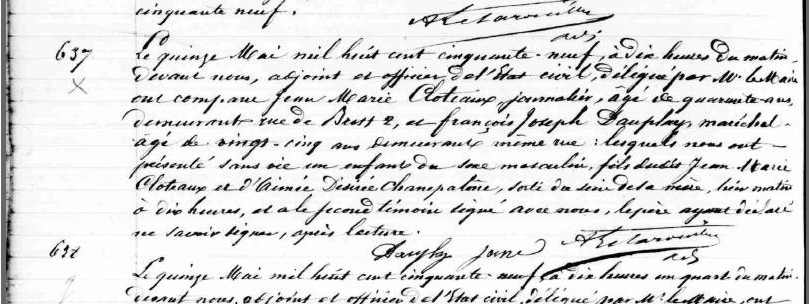 cinquante neuf.
637
Le quinze Mai mil huit cent cinquante-neuf, à dix heures du matin,
devant nous, adjoint et officier de l'État civil, délégué par Mr. le Maire
ont comparu Jean Marie Cloteaux, journalier, âgé de quarante ans,
demeurant rue de Brest 2, et françois Joseph Dauphy, maréchal
âgé de vingt-cinq ans demeurant même rue: lesquels nous ont
présenté sans vie un enfant du sexe masculin, fils dudit Jean Marie
Cloteaux et d'Aimée Désirée Champalone, sorti du sein de sa mère, hier matin
à dix heures, et a le second témoin signé avec nous, le père ayant déclaré
ne savoir signer, après lecture.
adj
638
Le quinze Mai mil huit cent cinquante-neuf à dix heures un quart du matin
devant nous, adjoint et officier de l'État civil, délégué par Mr. le Maire, ont